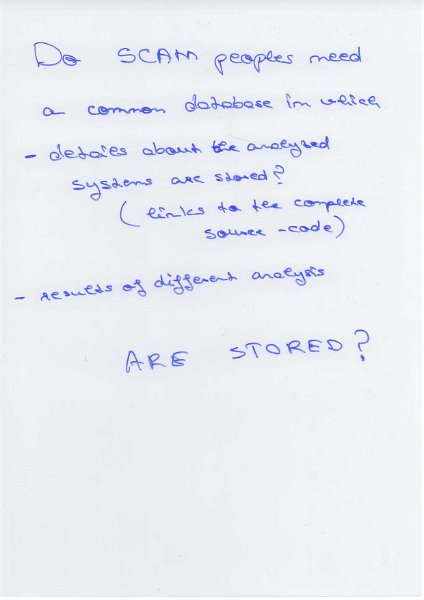 Do SCAM peoples need
a common database in which
- detailes about the analyzed
systems are stored?
(links to the complete
source-code)
- results of different analysis
ARE STORED?